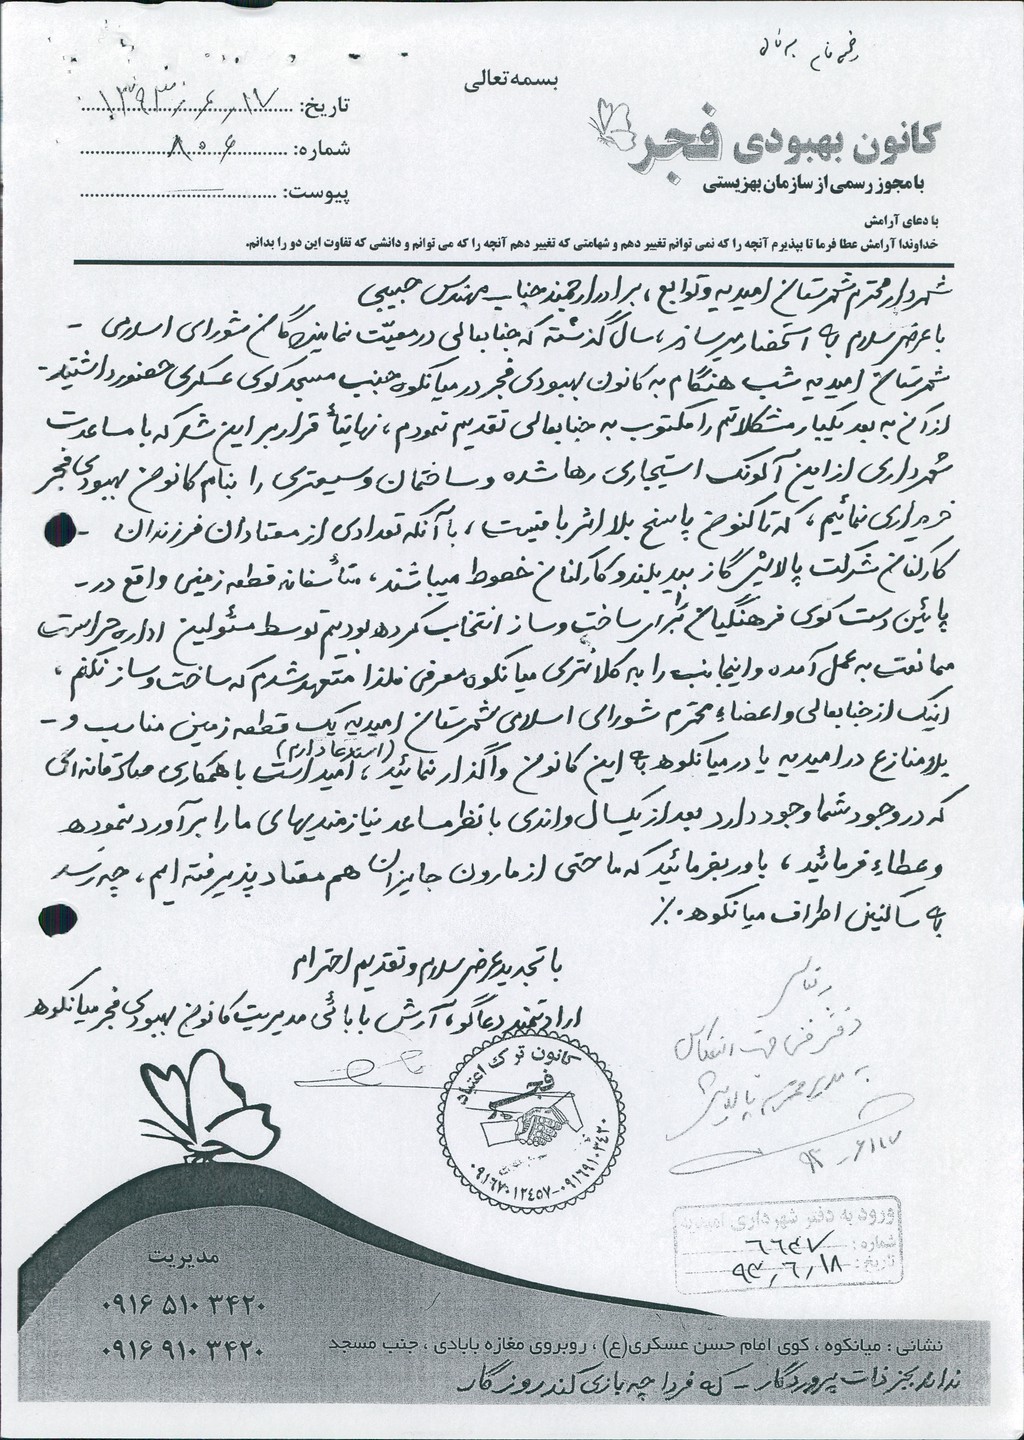 بسمه تعالی
کانون بهبودی فجر
با مجوز رسمی از سازمان بهزیستی
تاریخ: ۱۳۹۳/۰۶/۱۷
شماره: ۸۰۶
پیوست:
با دعای آرامش
خداوندا آرامش عطا فرما تا بپذیرم آنچه را که نمی توانم تغییر دهم و شهامتی که تغییر دهم آنچه را که می توانم و دانشی که تفاوت این دو را بدانم.
شهردار محترم شهرستان امیدیه و توابع، برادر ارجمند جناب مهندس حبیبی
با عرض سلام به استحضار میرساند، سال گذشته که جنابعالی در معیّت نمایندگان شورای اسلامی -
شهرستان امیدیه شب هنگام به کانون بهبودی فجر در میانکوه جنب مسجد کوی عسکری حضور داشتید -
از آن به بعد یکبار مشکلاتم را مکتوب به جنابعالی تقدیم نمودم، نهایتاً قرار بر این شد که با مساعدت
شهرداری از این آلونک استیجاری رها شده و ساختمان وسیعتری را بنام کانون بهبودی فجر
خریداری نمائیم، که تاکنون پاسخ بلا اثر باقیست، با آنکه تعدادی از معتادان فرزندان -
کارکنان شرکت پالایش گاز بید بلند و کارکنان خطوط میباشند، متأسفانه قطعه زمینی واقع در -
پائین دست کوی فرهنگیان برای ساخت و ساز انتخاب کرده بودیم توسط مسئولین اداره حراست
ممانعت به عمل آمده و اینجانب را به کلانتری میانکوه معرفی فلذا متعهد شدم که ساخت و ساز نکنم،
اینک از جنابعالی و اعضاء محترم شورای اسلامی شهرستان امیدیه یک قطعه زمین مناسب و -
بلامنازع در امیدیه یا در میانکوه به این کانون واگذار نمائید (استدعا دارم)، امید است با همکاری صادقانه ائی
که در وجود شما وجود دارد بعد از یکسال و اندی با نظر مساعد نیازمندیهای ما را برآورد نموده
و عطاء فرمائید، باور بفرمائید که ما حتی از مارون جایزان هم معتاد پذیرفته ایم، چه رسد
به ساکنین اطراف میانکوه ٪.
با تجدید عرض سلام و تقدیم احترام
ارادتمند دعاگو، آرش بابائی مدیریت کانون بهبودی فجر میانکوه
کانون ترک اعتیاد
فجر
۰۹۱۶۷۰۱۲۴۵۷-۰۹۱۶۹۱۰۳۴۲۰
دفتر فنی جهت انعکاس
به مدیر محترم پالایش
۹۳/۶/۱۷
ورود به دفتر شهرداری امیدیه
شماره: ۶۶۴۷
تاریخ: ۹۳/۶/۱۸
مدیریت
۰۹۱۶ ۵۱۰ ۳۴۲۰
۰۹۱۶ ۹۱۰ ۳۴۲۰
نشانی: میانکوه، کوی امام حسن عسکری(ع)، روبروی مغازه بابادی، جنب مسجد
نداند بجز ذات پروردگار - که فردا چه بازی کند روزگار